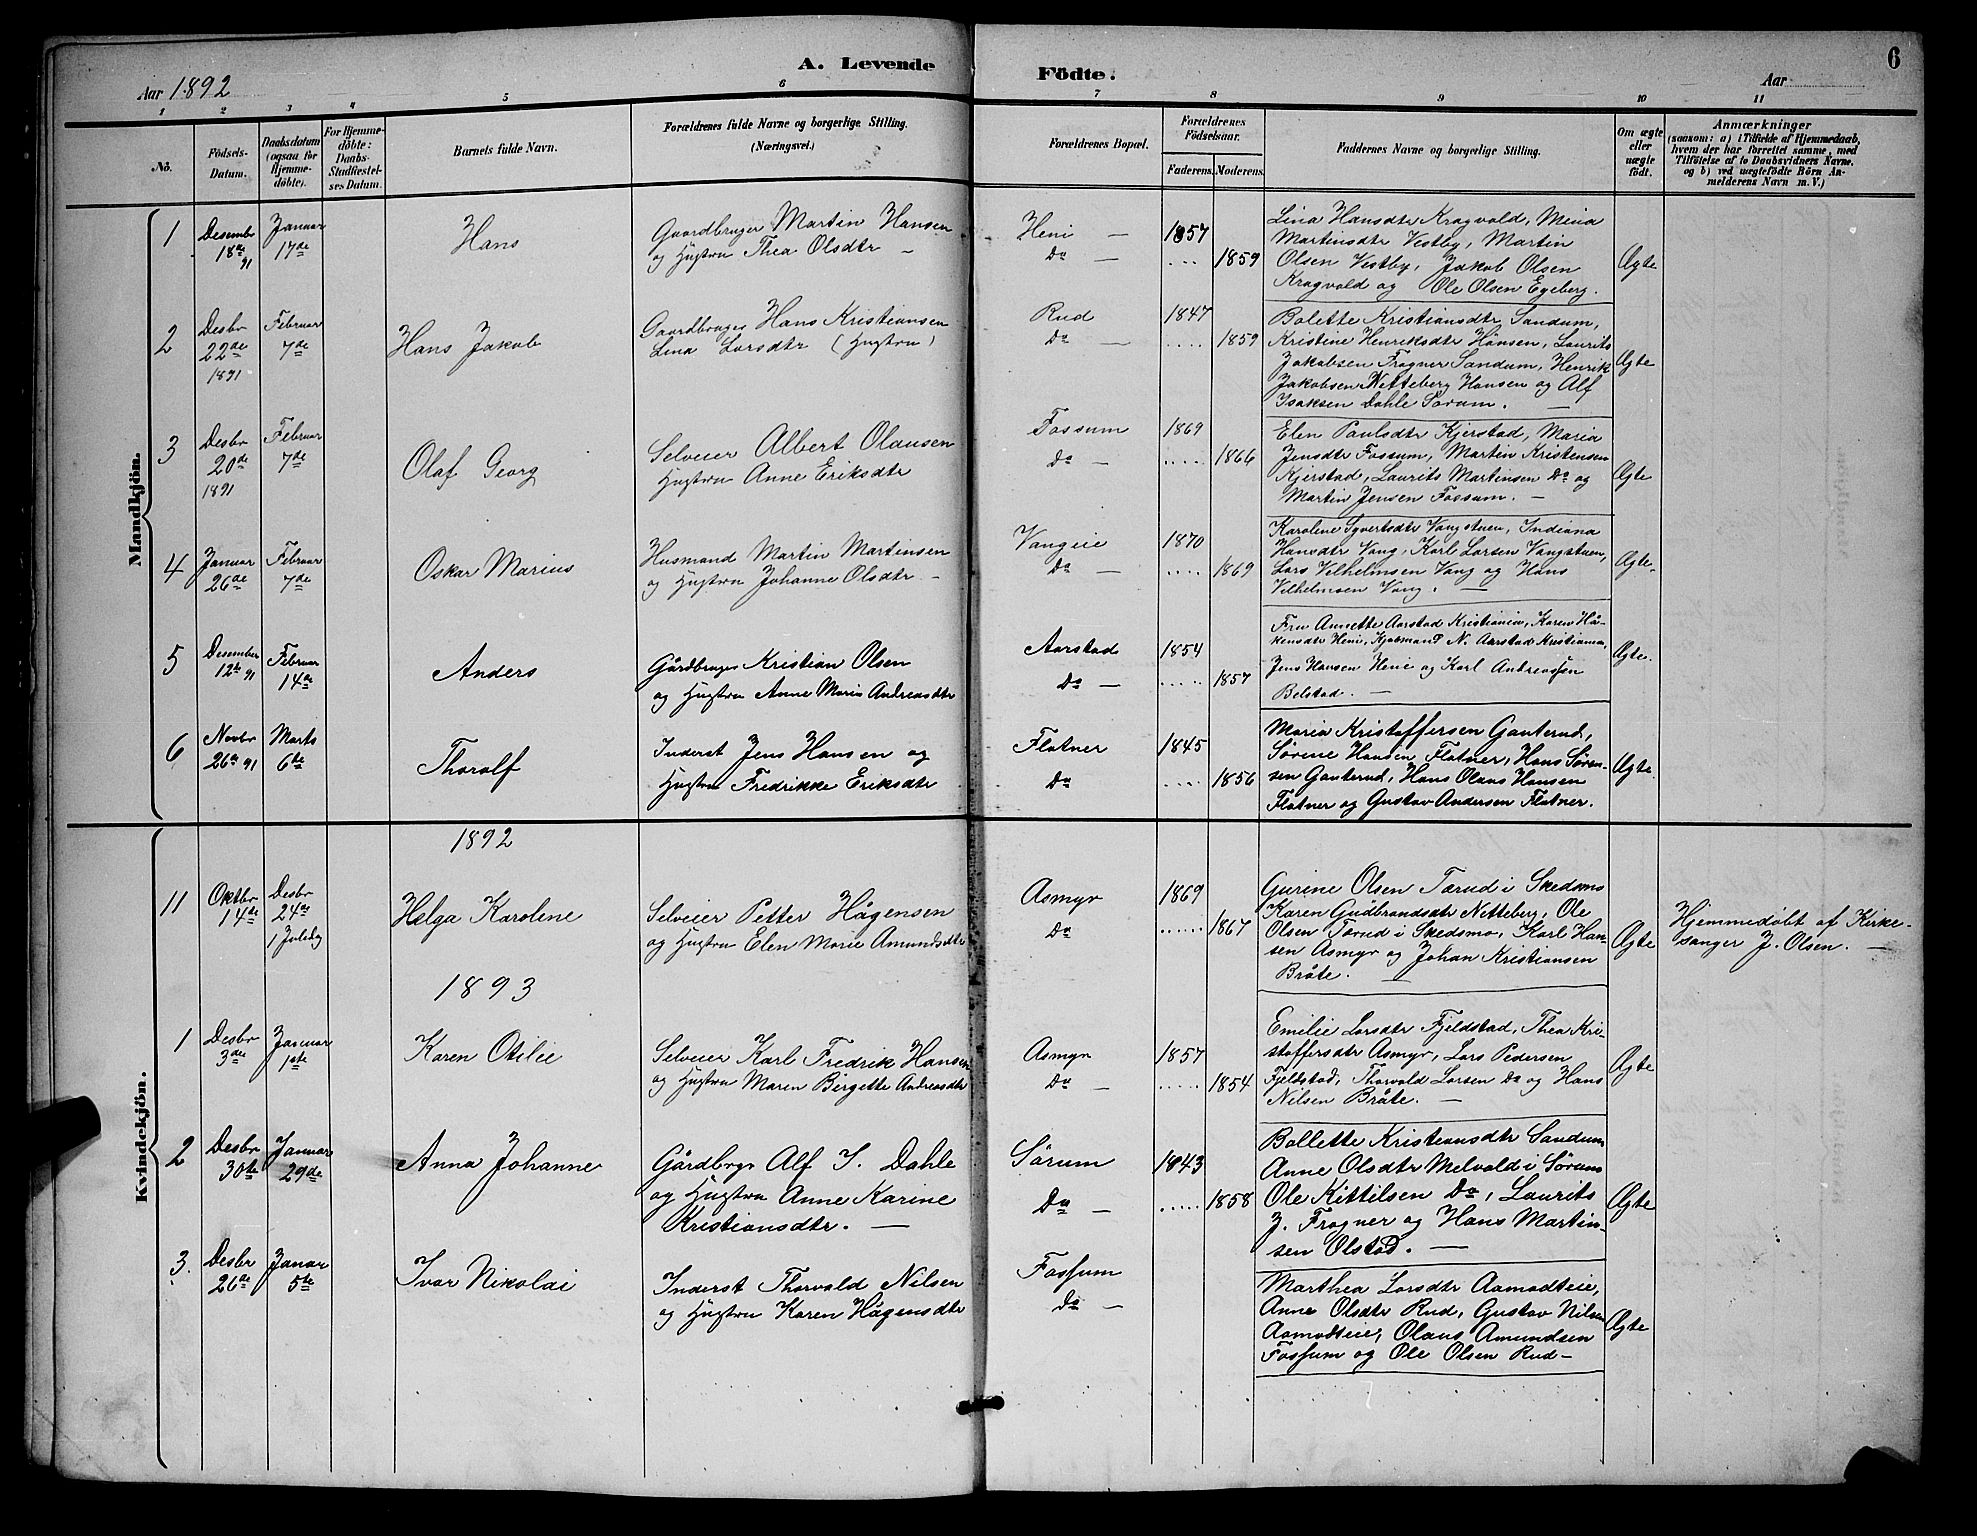 A. Levende Födte.
6
Aar 1892
Aar
1 2 3 4 5 6 7 8 9 10 11
No.
Födsels-
Datum.
Daabsdatum
(ogsaa for
Hjemme-
döbte).
For Hjemme-
döbte:
Daabs-
Stadfæstel-
ses Datum.
Barnets fulde Navn.
Forældrenes fulde Navne og borgerlige Stilling.
(Næringsvei.)
Forældrenes Bopæl.
Forældrenes
Födselsaar.
Faderens.
Moderens.
Faddernes Navne og borgerlige Stilling.
Om ægte
eller
uægte
födt.
Anmærkninger
(saasom: a) i Tilfælde af Hjemmedaab,
hvem der har forrettet samme, med
Tilföielse af to Daabsvidners Navne,
og b) ved uægtefödte Börn An-
melderens Navn m. V.)
Mandkjön.
1
Desembr
18de 91
Januar
17de
Hans
Gaardbruger Martin Hansen
og Hustru Thea Olsdtr –
Heni –
Do –
1857
1859
Lina Hansdtr Kragvold, Mina
Martinsdtr Vestby, Martin
Olsen Vestby, Jakob Olsen
Kragvold og Ole Olsen Egeberg.
Ægte
2
Desbr
22de
1891
Februar
7de
Hans Jakob
Gaardbruger Hans Kristiansen
Lina Larsdtr (Hustru)
Rud
Do –
1847
1859
Bolette Kristiansdtr Sandum,
Kristine Henriksdtr Hansen, Laurits
Jakobsen Frogner Sandum, Henrik
Jakobsen Netteberg Hansen og Alf
Isaksen Dahle Sørum. –
Ægte
3
Desbr
20de
1891
Februar
7de
Olaf Georg
Selveier Albert Olausen
Hustru Anne Eriksdtr
Fossum
Do –
1869
1866
Elen Paulsdtr Kjerstad, Maria
Jensdtr Fossum, Martin Kristensen
Kjerstad, Laurits Martinsen Do og
Martin Jensen Fossum. –
Ægte
4
Januar
26de
Februar
7de
Oskar Marius
Husmand Martin Martinsen
og Hustru Johanne Olsdtr –
Vangeie
Do –
1870
1869
Karolene Syvertsdtr Vangstuen, Indiana
Hansdtr Vang, Karl Larsen Vangstuen,
Lars Vilhelmsen Vang og Hans
Vilhelmsen Vang. –
Ægte.
5
Desember
12te 91
Februar
14de
Anders
Gårdbruger Kristian Olsen
og Hustru Anne Maria Andreasdtr
Aarstad
Do –
1854
1857
Fru Annette Aarstad Kristiania, Karen Hå-
kensdtr Heni, Kjøbmand N. Aarstad Kristiania,
Jens Hansen Heni og Karl Andreassen
Belstad. –
Ægte.
6
Novbr
26de 91
Marts
6te
Thoralf
Inderst Jens Hansen og
Hustru Fredrikke Eriksdtr
Flatner
Do
1845
1856
Maria Kristoffersen Ganterud,
Sørine Hansen Flatner, Hans Søren-
sen Ganterud, Hans Olaus Hansen
Flatner og Gustav Andersen Flatner.
Ægte
Kvindekjön.
1892
11
Oktbr
14de
Desbr
24de
1 Juledag
Helga Karolene
Selveier Petter Hågensen
og Hustru Elen Marie Amundsdtr
Asmyr
Do
1869
1867
Gurine Olsen Tærud i Skedsmo
Karen Gudbrandsdtr Netteberg, Ole
Olsen Tærud i Skedsmo, Karl Han-
sen Asmyr og Johan Kristiansen
Bråte. –
Ægte
Hjemmedøbt af Kirke-
sanger J. Olsen. –
1893
1
Desbr
3de
Januar
1ste
Karen Otilie
Selveier Karl Fredrik Hansen
og Hustru Maren Birgette Andreasdtr
Asmyr
Do –
1857
1854
Emilie Larsdtr Fjeldstad, Thea Kri-
stoffersdtr Asmyr, Lars Pedersen
Fjeldstad, Thorvald Larsen Do og Hans
Nilsen Bråte. –
Ægte
2
Desbr
30te
Januar
29de
Anna Johanne
Gårdbrgr Alf I. Dahle
og Hustru Anne Karine
Kristiansdtr. –
Sørum
Do –
1843
1858
Bollette Kristiansdtr Sandum
Anne Olsdtr Melvold i Sørum
Ole Kittilsen Do, Laurits
J. Frogner og Hans Martin-
sen Olstad. –
Ægte
3.
Desbr
26de
Januar
5te
Ivar Nikolai
Inderst Thorvald Nilsen
og Hustru Karen Hågensdtr
Fossum
Do –
Marthea Larsdtr Aamodteie,
Anne Olsdtr Rud, Gustav Nilsen
Aamodteie, Olaus Amundsen
Fossum og Ole Olsen Rud –
Ægte